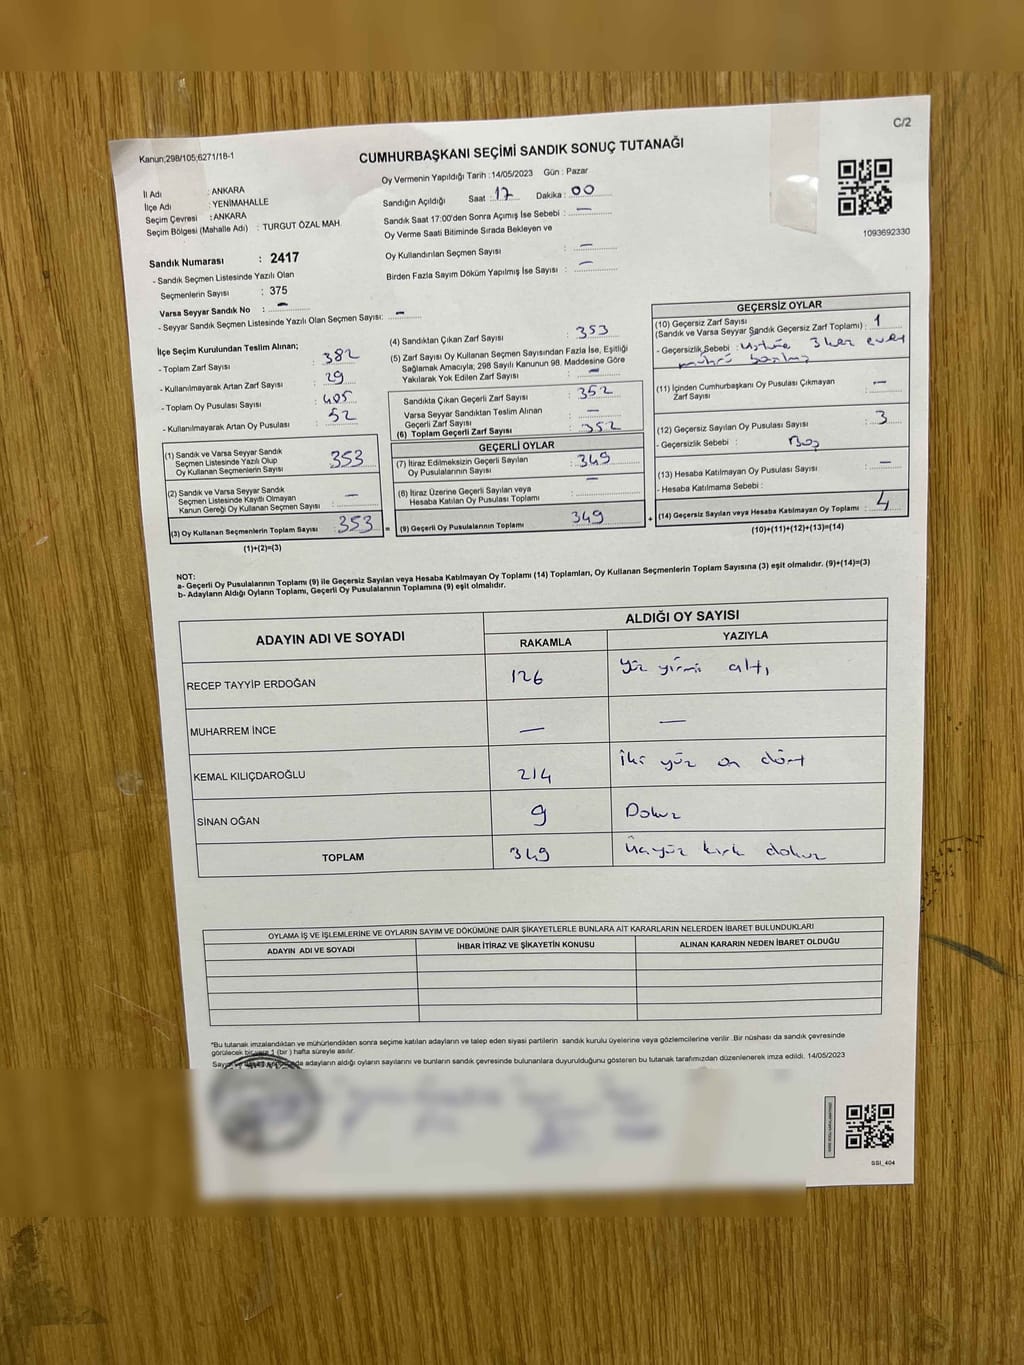 C/2
Kanun;298/105;6271/18-1
CUMHURBAŞKANI SEÇİMİ SANDIK SONUÇ TUTANAĞI
İl Adı : ANKARA
İlçe Adı : YENİMAHALLE
Seçim Çevresi : ANKARA
Seçim Bölgesi (Mahalle Adı) : TURGUT ÖZAL MAH.
Oy Vermenin Yapıldığı Tarih :14/05/2023 Gün : Pazar
Sandığın Açıldığı Saat : 17 Dakika : 00
Sandık Saat 17:00'den Sonra Açımış İse Sebebi : —
Oy Verme Saati Bitiminde Sırada Bekleyen ve
Oy Kullandırılan Seçmen Sayısı : —
Birden Fazla Sayım Döküm Yapılmış İse Sayısı : —
1093692330
Sandık Numarası : 2417
- Sandık Seçmen Listesinde Yazılı Olan
Seçmenlerin Sayısı : 375
Varsa Seyyar Sandık No : —
- Seyyar Sandık Seçmen Listesinde Yazılı Olan Seçmen Sayısı: —
İlçe Seçim Kurulundan Teslim Alınan;
- Toplam Zarf Sayısı : 382
- Kullanılmayarak Artan Zarf Sayısı : 29
- Toplam Oy Pusulası Sayısı : 405
- Kullanılmayarak Artan Oy Pusulası : 52
(1) Sandık ve Varsa Seyyar Sandık
Seçmen Listesinde Yazılı Olup
Oy Kullanan Seçmenlerin Sayısı : 353
(2) Sandık ve Varsa Seyyar Sandık
Seçmen Listesinde Kayıtlı Olmayan
Kanun Gereği Oy Kullanan Seçmen Sayısı : —
(3) Oy Kullanan Seçmenlerin Toplam Sayısı : 353 =
(1)+(2)=(3)
(4) Sandıktan Çıkan Zarf Sayısı : 353
(5) Zarf Sayısı Oy Kullanan Seçmen Sayısından Fazla İse, Eşitliği
Sağlamak Amacıyla; 298 Sayılı Kanunun 98. Maddesine Göre
Yakılarak Yok Edilen Zarf Sayısı : —
Sandıkta Çıkan Geçerli Zarf Sayısı : 352
Varsa Seyyar Sandıktan Teslim Alınan
Geçerli Zarf Sayısı : —
(6) Toplam Geçerli Zarf Sayısı : 352
GEÇERLİ OYLAR
(7) İtiraz Edilmeksizin Geçerli Sayılan
Oy Pusulalarının Sayısı : 349
(8) İtiraz Üzerine Geçerli Sayılan veya
Hesaba Katılan Oy Pusulası Toplamı : —
(9) Geçerli Oy Pusulalarının Toplamı : 349 +
GEÇERSİZ OYLAR
(10) Geçersiz Zarf Sayısı
(Sandık ve Varsa Seyyar Sandık Geçersiz Zarf Toplamı) : 1
- Geçersizlik Sebebi : Üstüne 3 kez evet
mührü basılmış
(11) İçinden Cumhurbaşkanı Oy Pusulası Çıkmayan
Zarf Sayısı : —
(12) Geçersiz Sayılan Oy Pusulası Sayısı : 3
- Geçersizlik Sebebi : Boş
(13) Hesaba Katılmayan Oy Pusulası Sayısı : —
- Hesaba Katılmama Sebebi :
(14) Geçersiz Sayılan veya Hesaba Katılmayan Oy Toplamı : 4
(10)+(11)+(12)+(13)=(14)
NOT:
a- Geçerli Oy Pusulalarının Toplamı (9) ile Geçersiz Sayılan veya Hesaba Katılmayan Oy Toplamı (14) Toplamları, Oy Kullanan Seçmenlerin Toplam Sayısına (3) eşit olmalıdır. (9)+(14)=(3)
b- Adayların Aldığı Oyların Toplamı, Geçerli Oy Pusulalarının Toplamına (9) eşit olmalıdır.
ADAYIN ADI VE SOYADI ALDIĞI OY SAYISI
RAKAMLA YAZIYLA
RECEP TAYYİP ERDOĞAN 126 Yüz yirmi altı
MUHARREM İNCE — —
KEMAL KILIÇDAROĞLU 214 İki yüz on dört
SİNAN OĞAN 9 Dokuz
TOPLAM 349 Üçyüz kırk dokuz
OYLAMA İŞ VE İŞLEMLERİNE VE OYLARIN SAYIM VE DÖKÜMÜNE DAİR ŞİKAYETLERLE BUNLARA AİT KARARLARIN NELERDEN İBARET BULUNDUKLARI
ADAYIN ADI VE SOYADI İHBAR İTİRAZ VE ŞİKAYETİN KONUSU ALINAN KARARIN NEDEN İBARET OLDUĞU
*Bu tutanak imzalandıktan ve mühürlendikten sonra seçime katılan adayların ve talep eden siyasi partilerin sandık kurulu üyelerine veya gözlemcilerine verilir. Bir nüshası da sandık çevresinde
görülecek bir yere 1 (bir) hafta süreyle asılır.
adayların aldığı oyların sayılarını ve bunların sandık çevresinde bulunanlara duyurulduğunu gösteren bu tutanak tarafımızdan düzenlenerek imza edildi. 14/05/2023
SSI_404